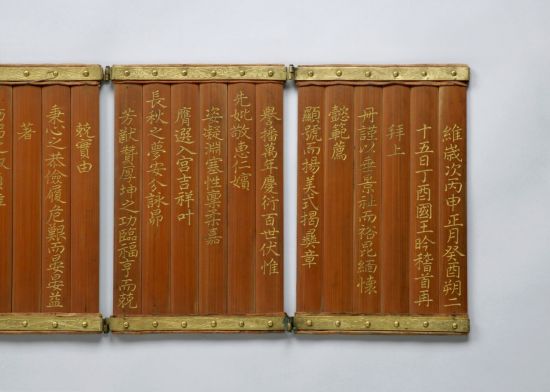 維歲次丙申正月癸酉朔二
十五日丁酉國王昑稽首再
拜上
冊謹以垂景祉而裕昆緬懷
懿範薦
顯號而揚美式揭彝章
譽播萬年慶衍百世伏惟
先妣敬惠仁嬪
姿凝淵塞性稟柔嘉
膺選入宮吉祥叶
長秋之夢安分詠昴
芳猷贊厚坤之功臨福亨而兢
兢實由
秉心之恭儉履危艱而晏晏益
著